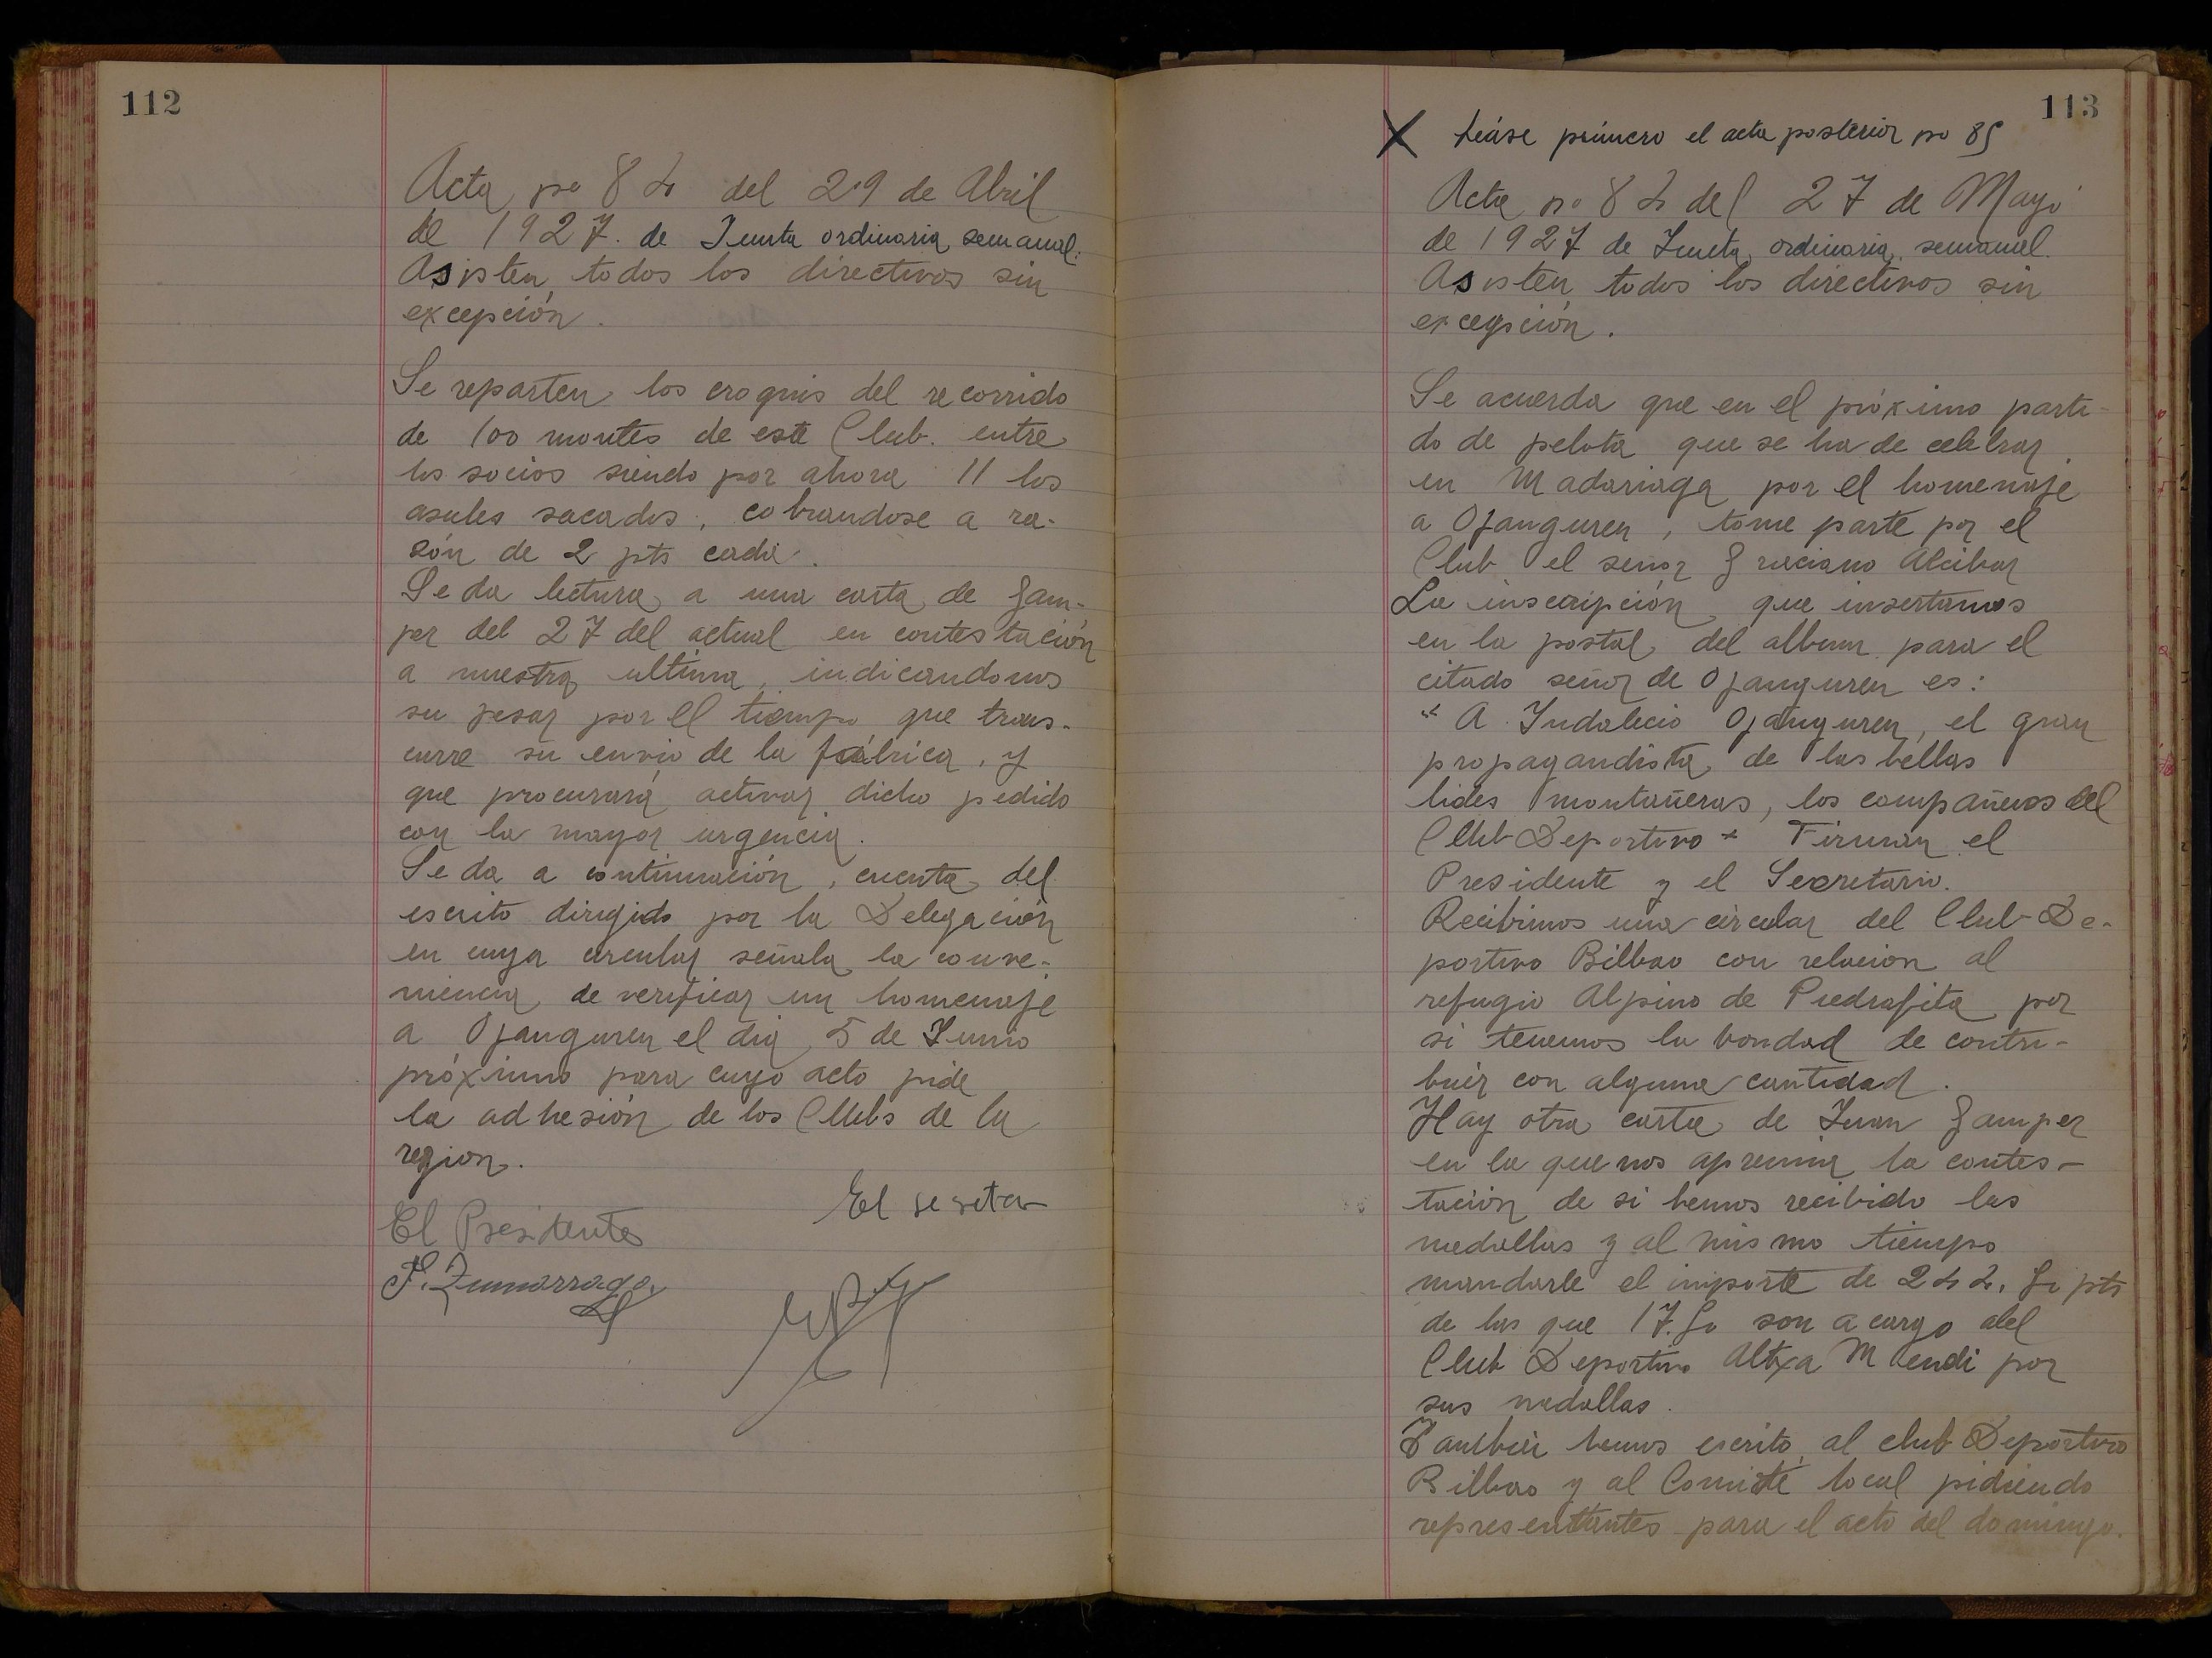 112
Acta no 84 del 29 de Abril
de 1927. de Junta ordinaria semanal.
Asisten todos los directivos sin
excepción.
Se reparten los croquis del recorrido
de 100 montes de este Club. entre
los socios siendo por ahora 11 los
asules sacados, cobrandose a ra-
zón de 2 pts cada.
Se da lectura a una carta de Gam-
per del 27 del actual en contestación
a nuestra ultima, indicandonos
su pesar por el tiempo que trans-
curre su envio de la fábrica, y
que procurará activar dicho pedido
con la mayor urgencia.
Se da a continuación, cuenta del
escrito dirigido por la Delegación
en cuya circular señala la conve-
niencia de verificar un homenaje
a Ojanguren el dia 5 de Junio
próximo para cuyo acto pide
la adhesión de los Clubs de la
region.
El Presidente
El secretar
P. Zumarraga
113
X Léase primero el acta posterior no 85
Acta no 84 del 27 de Mayo
de 1927 de Junta ordinaria semanal.
Asisten todos los directivos sin
excepción.
Se acuerda que en el próximo parti-
do de pelota que se ha de celebrar
en Madariaga por el homenaje
a Ojanguren, tome parte por el
Club el señor Graciano Alcibar
La inscripción que insertamos
en la postal del album para el
citado señor de Ojanguren es:
"A Indalecio Ojanguren, el gran
propagandista de las bellas
lides montañeras, los compañeros del
Club Deportivo" Firman el
Presidente y el Secretario.
Recibimos una circular del Club De-
portivo Bilbao con relacion al
refugio Alpino de Piedrafita por
si tenemos la bondad de contri-
buir con alguna cantidad.
Hay otra carta de Juan Gamper
en la que nos apremia la contes-
tación de si hemos recibido las
medallas y al mismo tiempo
mandarle el importe de 244. pts
de las que 17. son a cargo del
Club Deportivo Altxa Mendi por
sus medallas.
Tambien hemos escrito al club Deportivo
Bilbao y al Comité local pidiendo
representantes para el acto del domingo.